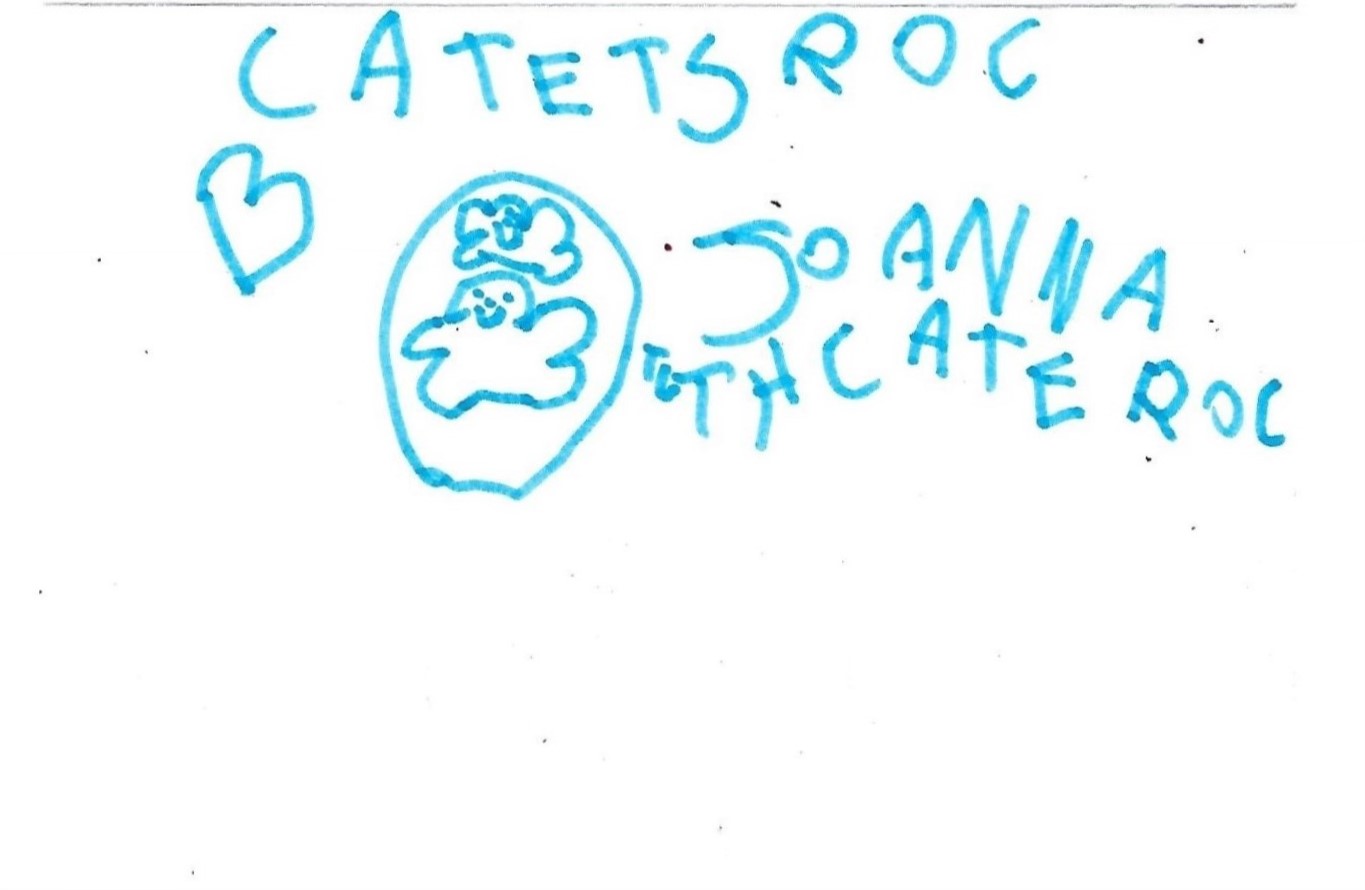 CATETS ROC
JOANNA
TH CATE ROC